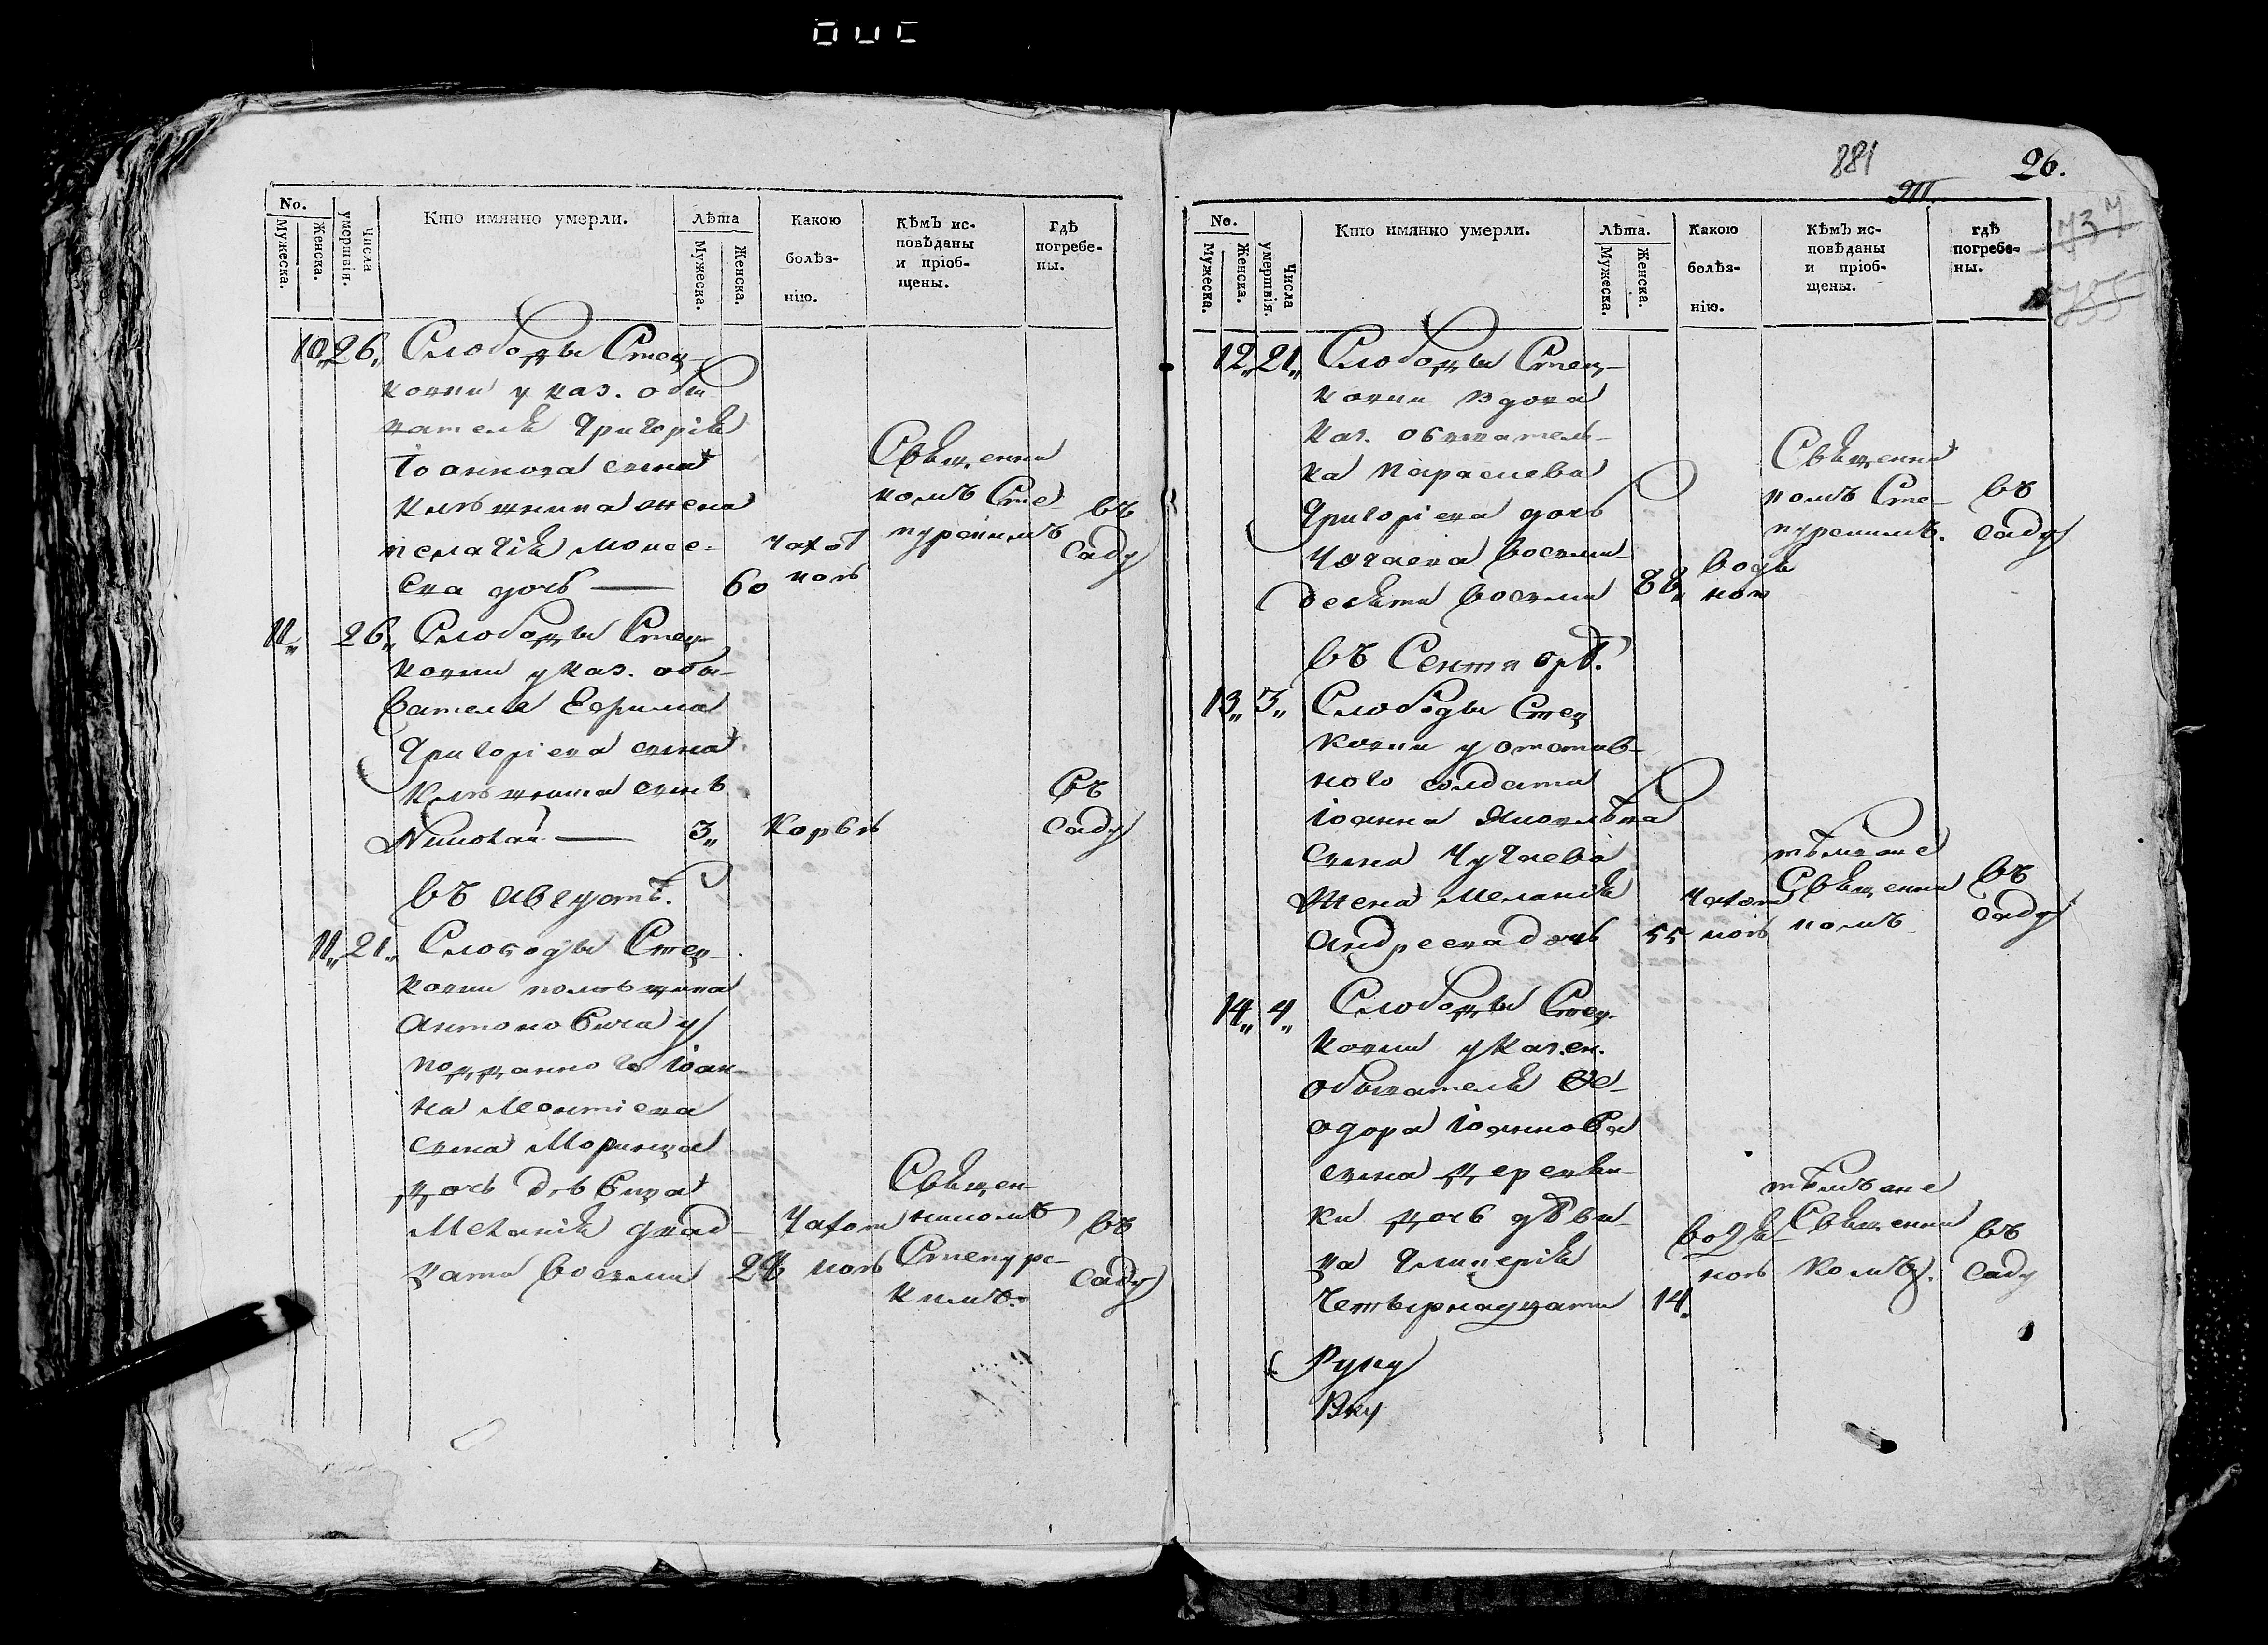 No.
Мужеска.
Женска.
Числа умертвія.
Кто имянно умерли.
Лѣта
Мужеска.
Женска.
Какою болѣз-
нію.
Кѣмъ ис-
повѣданы
и пріоб-
щены.
Гдѣ
погребе-
ны.
10„ 26„ Слободы Стец-
ковки у каз. обы
вателя Григорія
Іоаннова сына
жена
пелагія Моисе-
ева дочь — 60 чахот
кою
Священни
комъ Сте
пурскимъ
въ
саду
11„ 26„ Слободы Стец-
ковки у каз. обы-
вателя Ефрима
Григоріева сына
сынъ
Николай — 3„ Корью
въ
саду
въ августѣ.
11„ 21„ Слободы Стец-
ковки помѣщика
Антоновича у
подданного Іоан-
на Леонтіева
сына Моринца
дочь дѣвица
Меланія двад-
цати восьми 28 Чахот
кою
Священ-
никомъ
Степурс-
кимъ.
въ
саду
881
26.
737
No.
Мужеска.
Женска.
Числа умертвія.
Кто имянно умерли.
Лѣта.
Мужеска.
Женска.
Какою болѣз-
нію.
Кѣмъ ис-
повѣданы
и пріоб-
щены.
гдѣ
погребе-
ны.
12„ 21„ Слободы Стец-
ковки вдова
каз. обывател-
ка Параскева
Григоріева дочь
восьми-
десяти восьми 88„ водя
ною
Священни
комъ Сте-
пурскимъ.
въ
саду
въ Сентябрѣ.
13„ 3„ Слободы Стец
ковки у отстав-
ного солдата
Іоанна
сына Чучаева
Жена Меланія
Андреева дочь 55 Чахот
кою
тѣмъже
Священни
комъ
въ
саду
14„ 4„ Слободы Стец-
ковки у Каз.ен.
обывателя Ѳе-
одора Іоаннова
сына Деревян-
ки дочь дѣви-
ца Гликерія
Четырнадцати 14. водя
ною
тѣмъже
Священни
комъ.
въ
саду
Руку